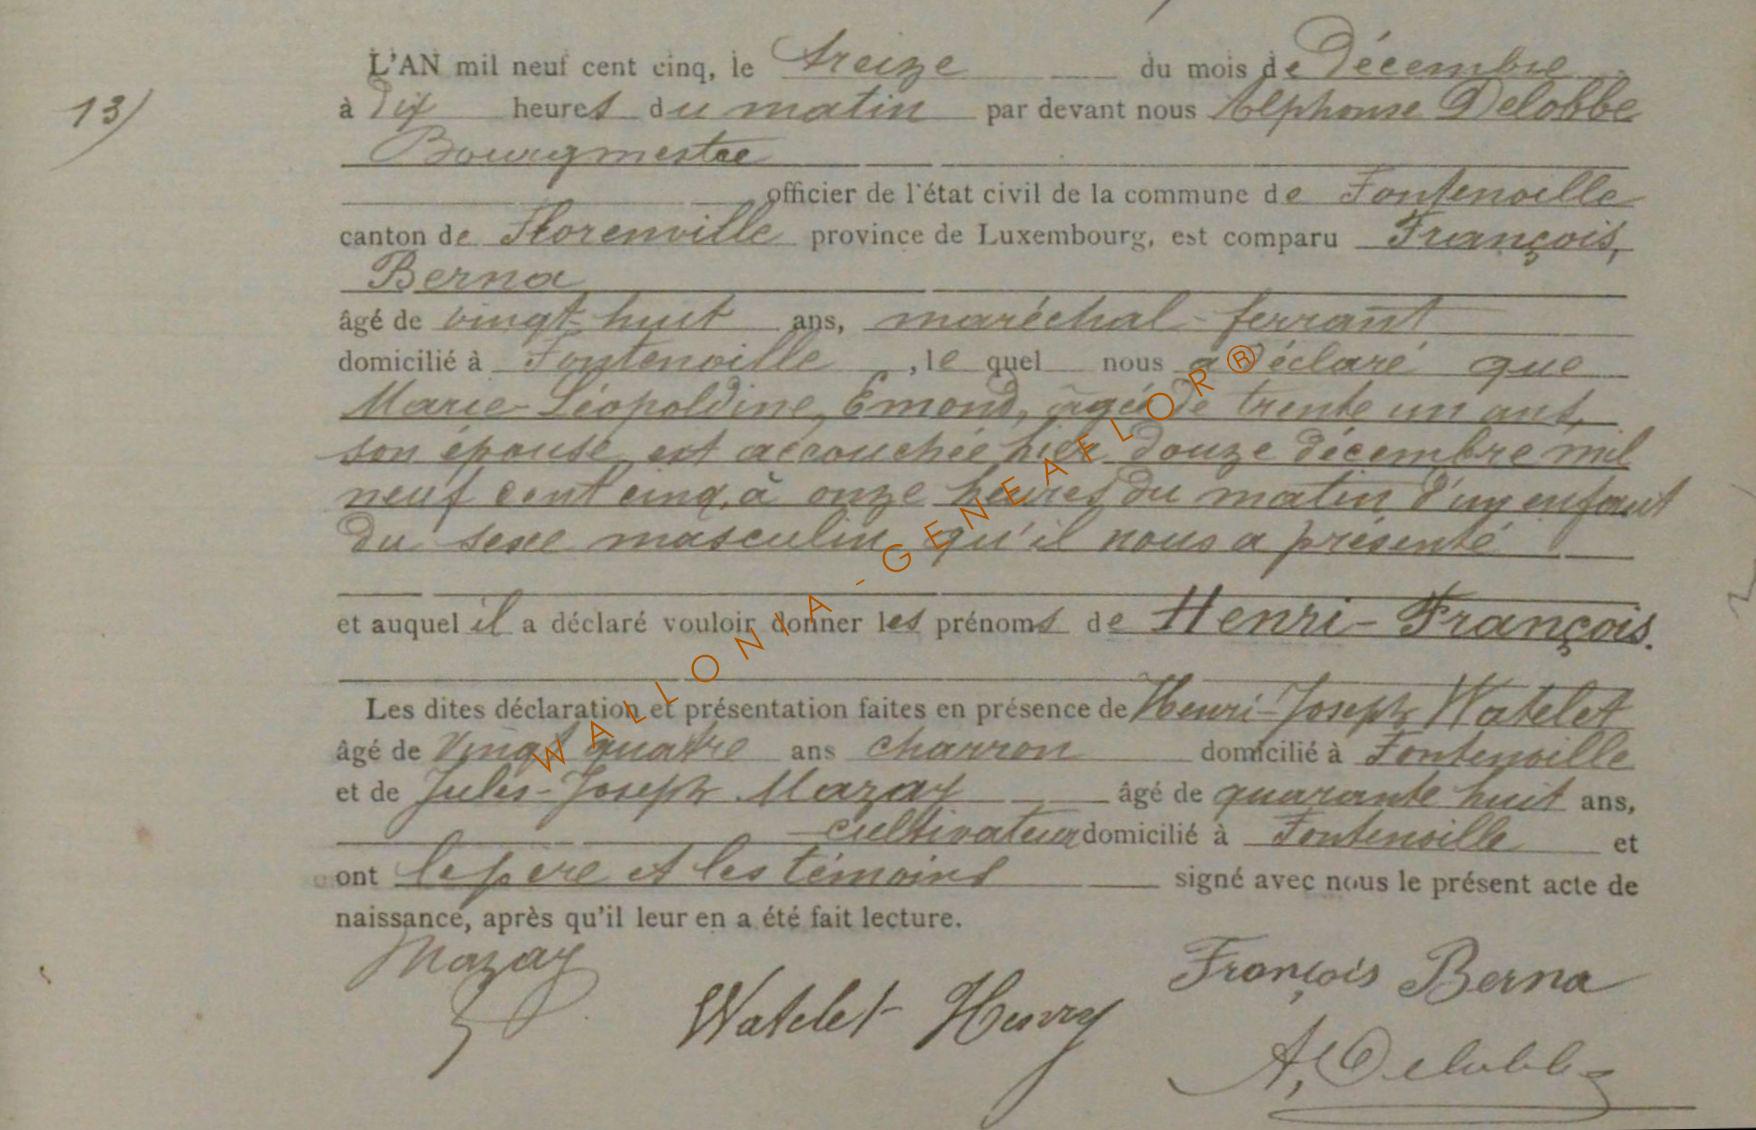 L'AN mil neuf cent cinq, le treize du mois de Décembre
13) à dix heures du matin par devant nous Alphonse Delobbe
Bourgmestre
officier de l'état civil de la commune de Fontenoille
canton de Florenville province de Luxembourg, est comparu François,
Berna
âgé de vingt-huit ans, maréchal-ferrant
domicilié à Fontenoille, le quel nous a déclaré que
Marie-Léopoldine, Emond, âgée de trente un ans,
son épouse est accouchée hier douze décembre mil
neuf cent cinq, à onze heures du matin d'un enfant
du sexe masculin qu'il nous a présenté
et auquel il a déclaré vouloir donner les prénoms de Henri-François.
Les dites déclaration et présentation faites en présence de Henri-Joseph Watelet
âgé de vingt quatre ans charron domicilié à Fontenoille
et de Jules-Joseph Mazay âgé de quarante huit ans,
cultivateur domicilié à Fontenoille et
ont le père et les témoins signé avec nous le présent acte de
naissance, après qu'il leur en a été fait lecture.
Mazay
François Berna
Watelet Henry
A, Delobbe
WALLONIA-GENEAFLOR®